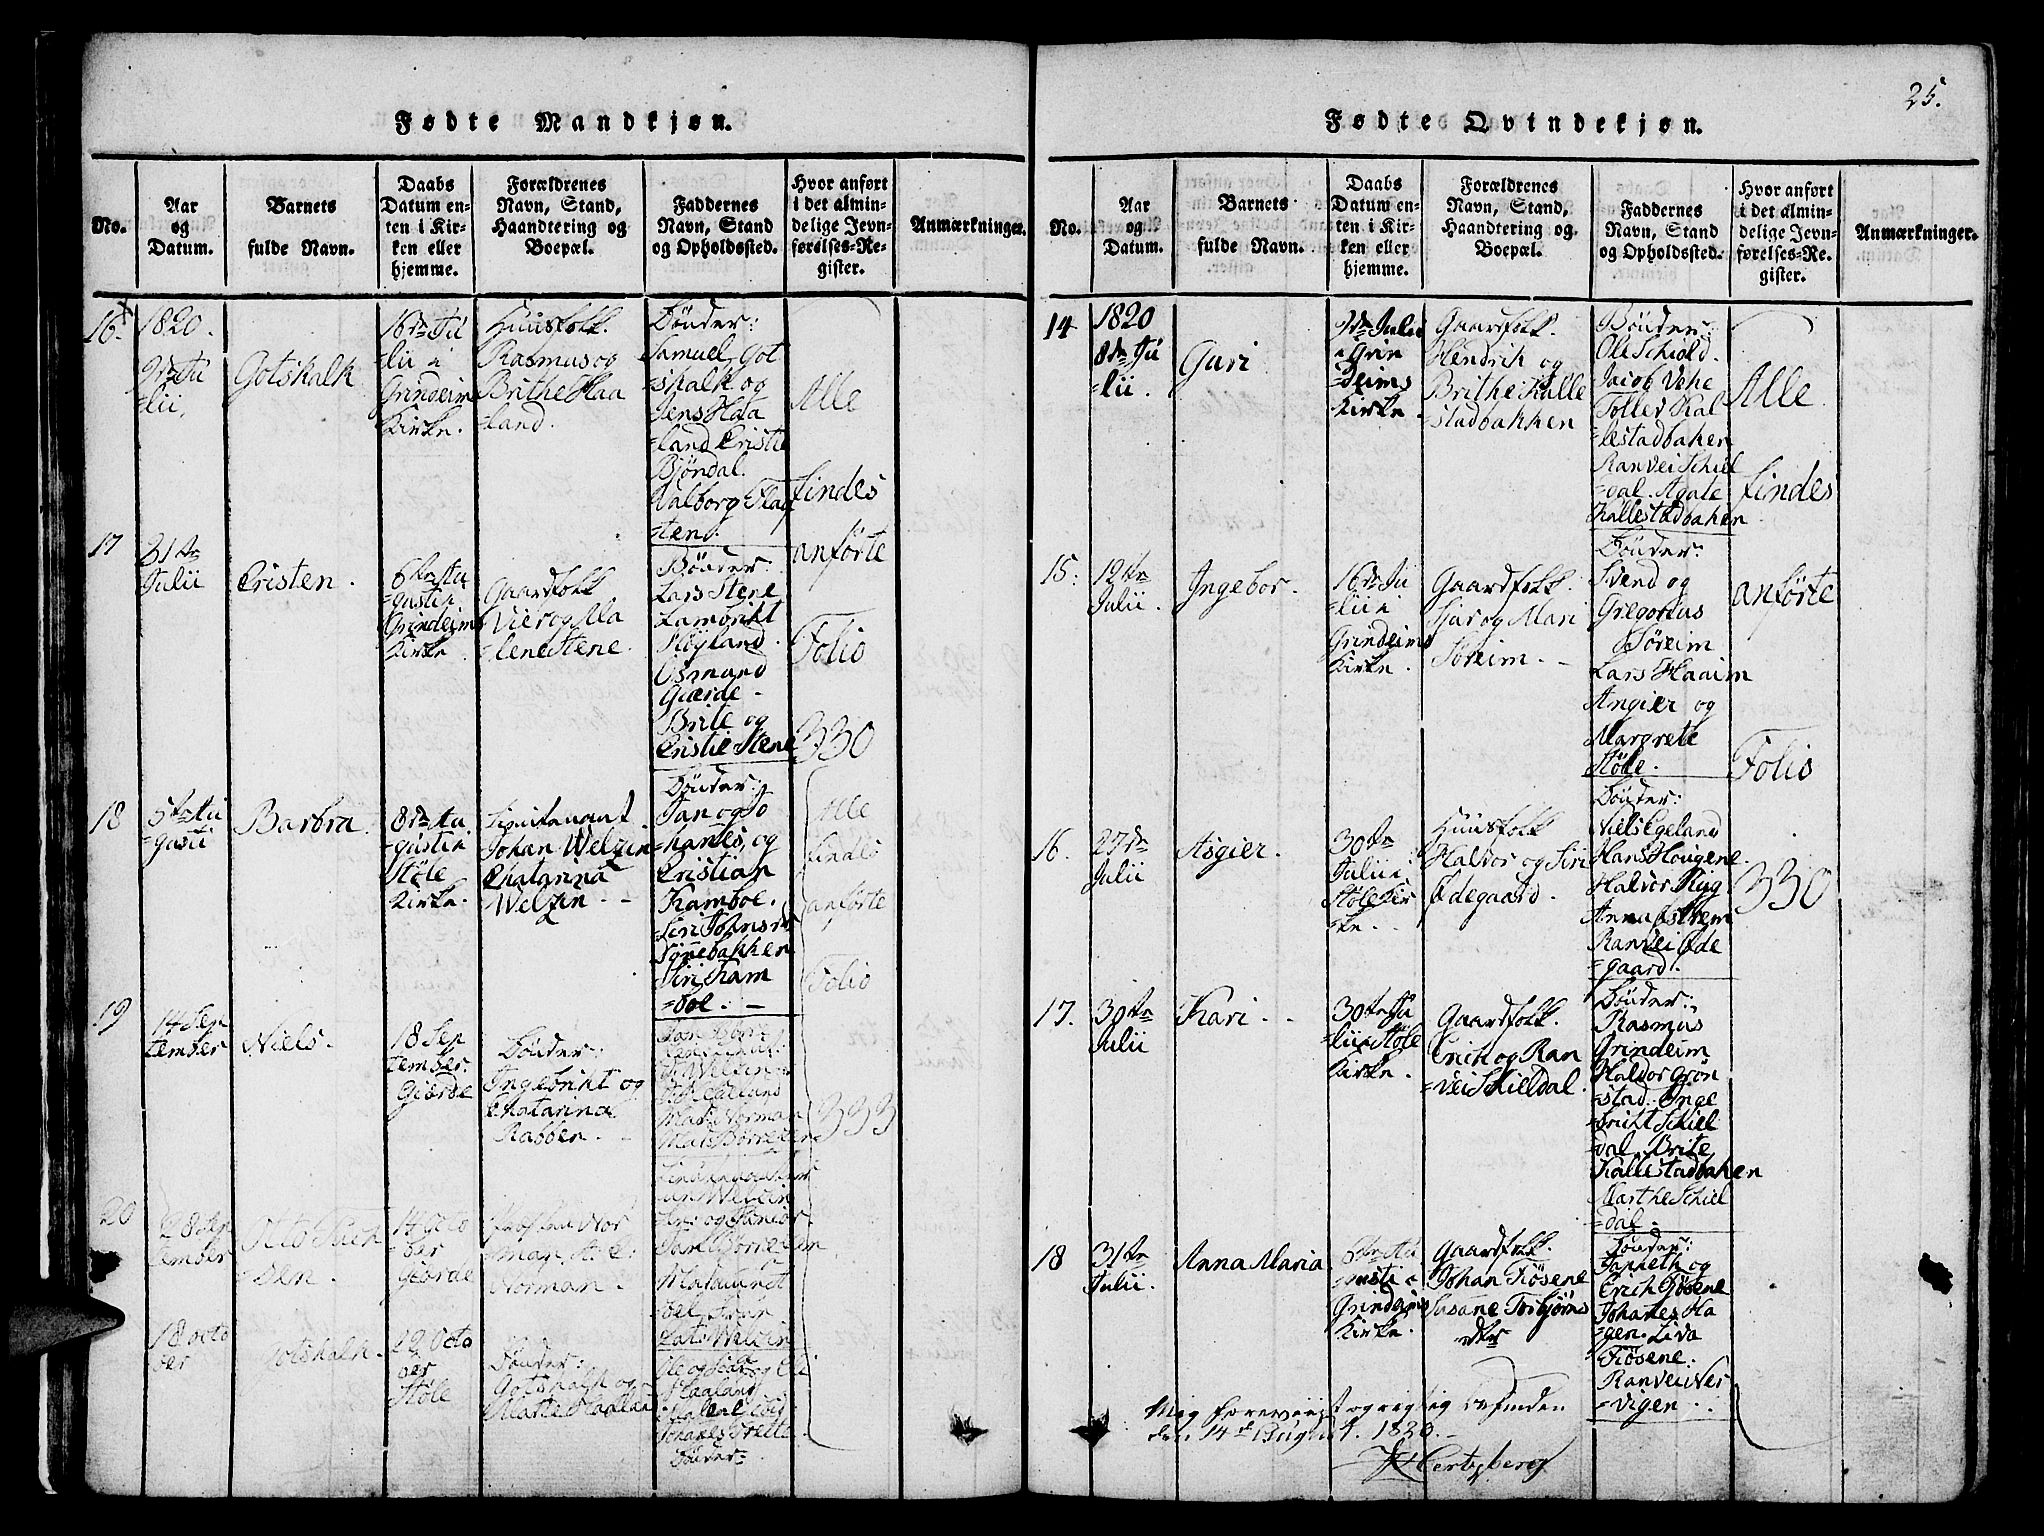 25.
Fødte Mandkjøn.
No.
Aar
og
Datum.
Barnets
fulde Navn.
Daabs
Datum en-
ten i Kir-
ken eller
hjemme.
Forældrenes
Navn, Stand,
Haandtering og
Boepæl.
Faddernes
Navn, Stand
og Opholdssted.
Hvor anført
i det almin-
delige Jevn-
førelses-Re-
gister.
Anmærkninger.
16.
1820.
9de Ju
=lii,
Gotskalk
16de Ju
=lii i
Grindeim
Kirke.
Huusfolk.
Rasmus og
Brithe Haa
=land.
Bønder:
Samuel, Got
=skalk og
Jens Haa
=land Cristie
Bjöndal.
Valborg Flag
=tend.
Alle
findes
anførte
Folio
330
17
31te
Julii
Cristen.
6te Au
=gusti
Grindeim
Kirke.
Gaardfolk
Vier og Ma
=lene Stene.
Bönder.
Lars Stene
Lambrikt
Høgland.
Osmund
Gierde.
Brite og
Cristie Stene
18
5te Au
=gusti
Barbra.
8de Au
=gusti
Støle
Kirke.
Lieutenant
Johan Welzin
Chatarina
Welzin.
Bønder:
Jan og Jo
=hanes, og
Cristian
Kamboe.
Siri Johnsdr
Tønnebakken
Siri Kam
=boe.
Alle
findes
anførte
Folio
333
19
14 Sep
tember
Niels.
18 Sep
tember
Gierde
Bönder:
Ingebrikt og
Chatarina
Rabben.
Welzin
Mad. Norman
20
28 Sep
tember
14 Octo
=ber
Gierde
Nor
=man
Norman.
Welzin
18 octo
ber
Gotskalk.
29 Octo
ber
Støle
Bönder:
Gotskalk og
Marte Haaland
Welzin
Haaland
Johanes
Bönder
Fødte Qvindekjøn.
No.
Aar
og
Datum.
Barnets
fulde Navn.
Daabs
Datum en-
ten i Kir-
ken eller
hjemme.
Forældrenes
Navn, Stand,
Haandtering og
Boepæl.
Faddernes
Navn, Stand
og Opholdssted.
Hvor anført
i det almin-
delige Jevn-
førelses-Re-
gister.
Anmærkninger.
14
1820
8de Ju
=lii.
Guri
9de Julii
i Grin
=deims
Kirke.
Gaardfolk.
Hendrik og
Brithe Kalle
=stadbakken
Bönder:
Ole Schiold.
Jacob Vehe
Tollev Kal
=lestadbaken
Ranvei Schiel
=dal. Agate
Kallestadbaken
Alle
findes
anførte
Folio
330
15.
12te
Julii.
Ingebor.
16de Ju
=lii i
Grindeims
Kirke.
Gaardfolk.
Sjur og Mari
Söreim.
Bönder:
Svend og
Gregorius
Søreim
Lars Haaim
Angier og
Margrete
Støle.
16.
27de
Julii
Asgier.
30te
Julii i
Støle Kir
=ke.
Huusfolk
Haldor og Siri
Ødegaard.
Bönder:
Niels Egeland
Hans Hougene.
Halvor Ryg
Anna Østrem
Ranvei Øde
=gaard.
17.
30te
Julii
Kari.
30te Ju
=lii i Støle
Kirke.
Gaardfolk.
Erich og Ran
=vei Schieldal.
Bönder:
Rasmus
Grindeim
Haldor Grön
=stad. Inge
=bricht Schiel
dal. Brite
Kallestadbaken
Marthe Schiel
=dal.
18
31te
Julii.
Anna Maria
6te Au
gusti i
Grindeims
Kirke.
Gaardfolk.
Johan Fiösene
Susane Torbjørns
dtr
Bönder:
Janneth og
Erich Fiösene
Johanes Ha
=gen. Liva
Fiösene.
Ranvei Ner
=vigen.
Mig foreviist og rigtig befunden
den 14de August. 1820.
Hertzberg